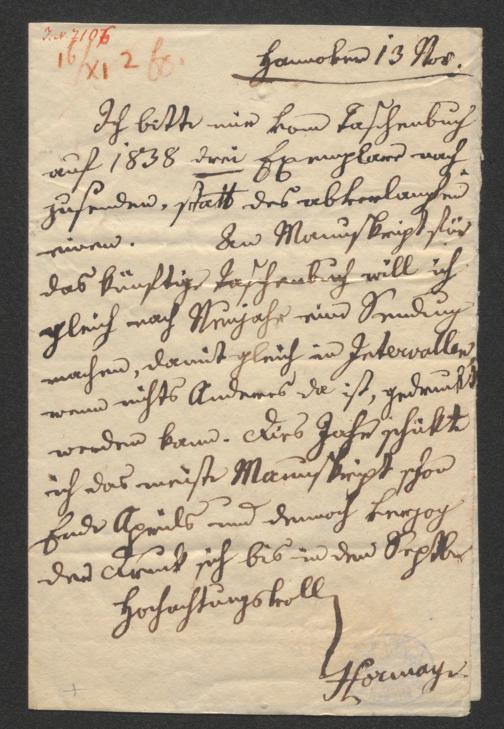 J.N. 7106
16/XI 2
Hannover 13 Nov.
Ich bitte mir vom Taschenbuch
auf 1838 drei Exemplare nach
zusenden, statt des abverlangten
einen. An Manuskript für
das künftige Taschenbuch will ich
gleich nach Neujahr eine Sendung
machen, damit gleich in Intervallen,
wenn nichts Anderes da ist, gedruckt
werden kann. Dies Jahr schickte
ich das meiste Manuskript schon
Ende Aprils und dennoch verzog
der Druck sich bis in den Septbr
Hochachtungsvoll
Hormayr